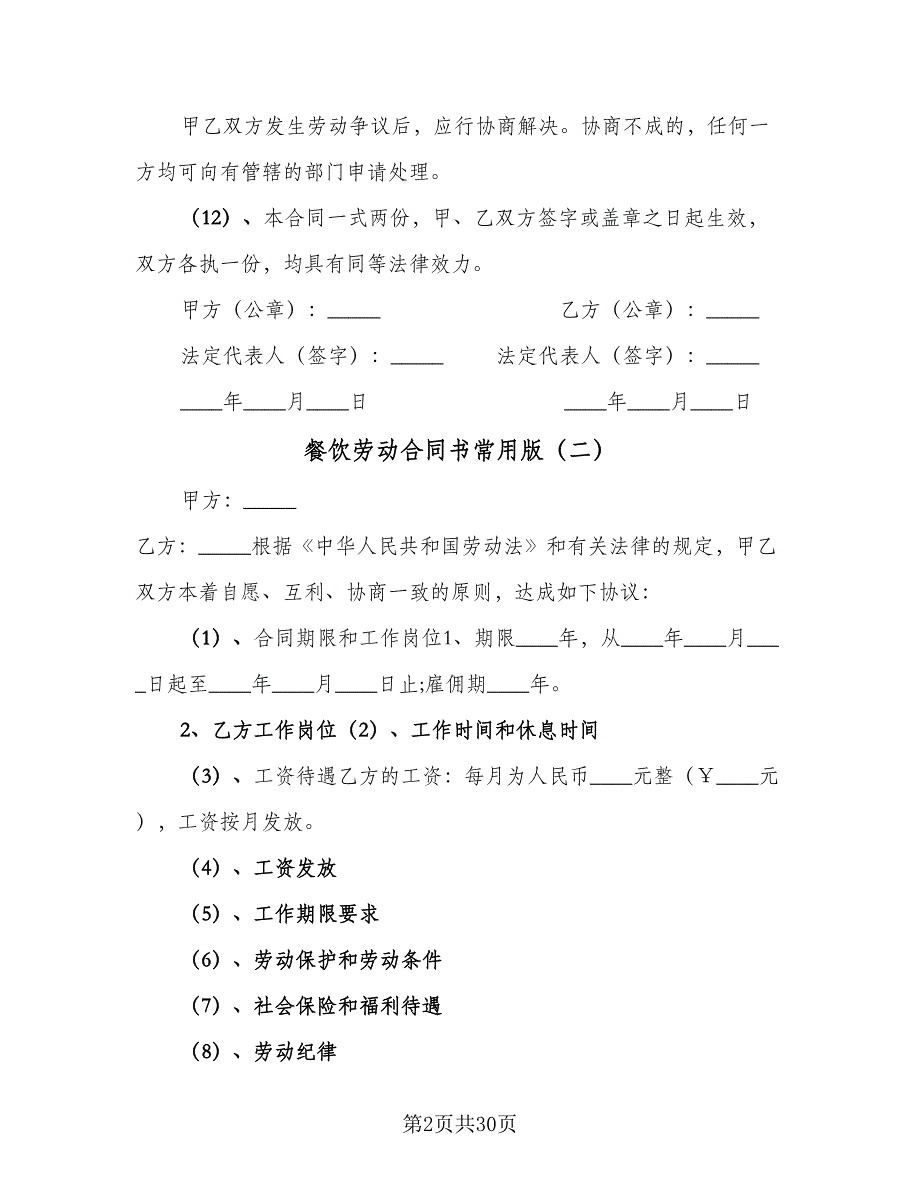 甲乙双方发生劳动争议后，应行协商解决。协商不成的，任何一
方均可向有管辖的部门申请处理。
（12）、本合同一式两份，甲、乙双方签字或盖章之日起生效，
双方各执一份，均具有同等法律效力。
甲方（公章）：_____ 乙方（公章）：_____
法定代表人（签字）：_____ 法定代表人（签字）：_____
____年____月____日 ____年____月____日
餐饮劳动合同书常用版（二）
甲方：_____
乙方：_____根据《中华人民共和国劳动法》和有关法律的规定，甲乙
双方本着自愿、互利、协商一致的原则，达成如下协议：
（1）、合同期限和工作岗位1、期限____年，从____年____月___
_日起至____年____月____日止;雇佣期____年。
2、乙方工作岗位（2）、工作时间和休息时间
（3）、工资待遇乙方的工资：每月为人民币____元整（￥____元
），工资按月发放。
（4）、工资发放
（5）、工作期限要求
（6）、劳动保护和劳动条件
（7）、社会保险和福利待遇
（8）、劳动纪律
第2页共30页